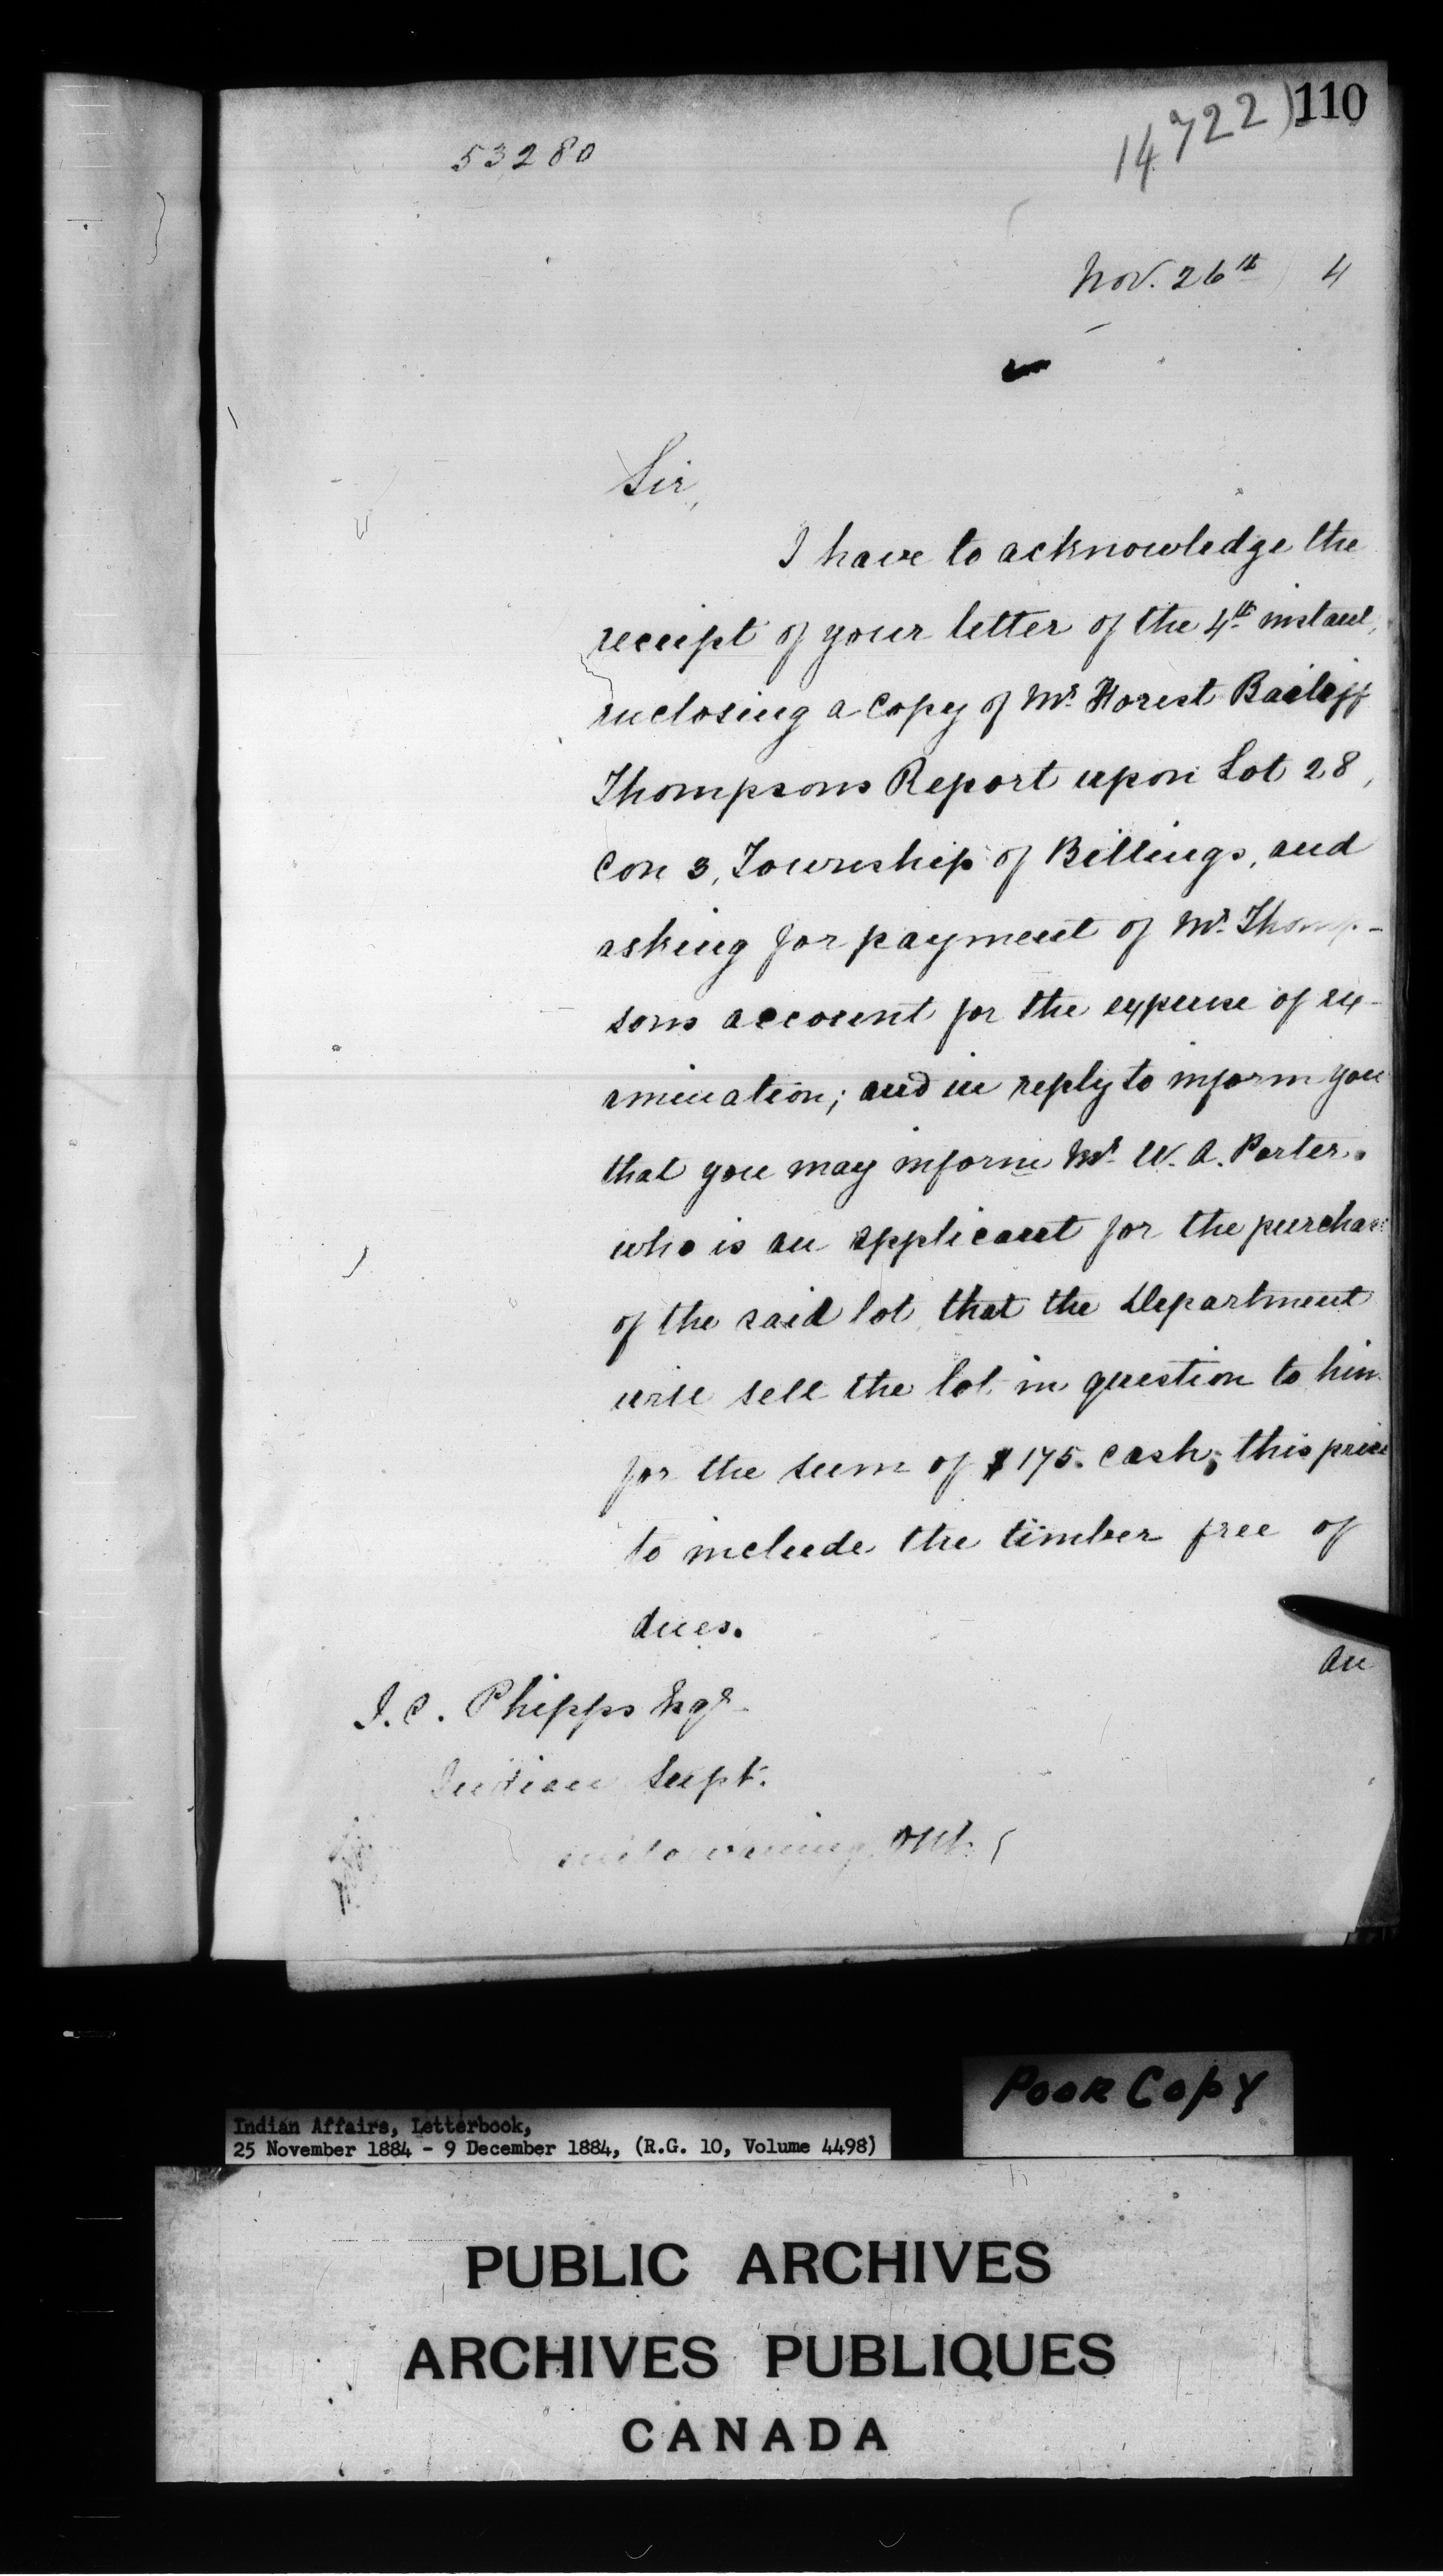 110
14722)
53280
Nov. 26th 4
Sir,
I have to acknowledge the
receipt of your letter of the 4th instant,
enclosing a Copy of Mr. Forest Bailiff
Thompsons Report upon Lot 28,
Con 3, Township of Billings, and
asking for payment of Mr. Thomp-
sons account for the expense of ex-
amination; and in reply to inform you
that you may inform Mr. W. A. Porter.
who is an applicant for the purchase
of the said lot, that the Department
will sell the lot in question to him
for the sum of $175. cash; this price
to include the timber free of
dues.
An
J. C. Phipps Esqr.
Indian Supt.
Manitowaning, Ont.
Poor Copy
Indian Affairs, Letterbook,
25 November 1884 - 9 December 1884, (R.G. 10, Volume 4498)
PUBLIC ARCHIVES
ARCHIVES PUBLIQUES
CANADA